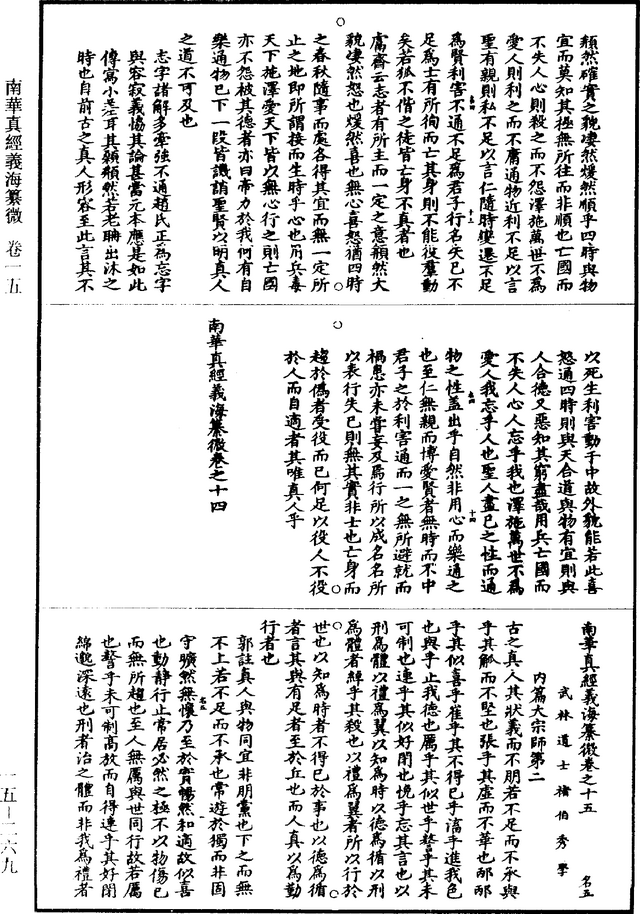 頯然確實之貌凄然煖然順乎四時與物
宜而莫知其極無所往而非順也亡國而
不失人心則殺之而不怨澤施萬世不為
愛人則利之而不庸通物近利不足以言
聖有親則私不足以言仁隨時變遷不足
為賢利害不通不足為君子行名失已不
足為士有所徇而亡其身則不能役羣動
矣若狐不偕之徒皆亡身不真者也
膚齋云志者有所主而一定之意頯然大
貌凄然怒也煖然喜也無心喜怒猶四時
之春秋隨事而處各得其宜而無一定所
止之地即所謂接而生時乎心也用兵毒
天下施澤愛天下皆以無心行之則亡國
亦不怨被其德者亦曰帝力於我何有自
樂通物已下一段皆譏誚聖賢以明真人
之道不可及也
志字諸解多牽強不通趙氏正為忘字
與容寂義愜其論甚當元本應是如此
傳寫小差耳其顙頯然若老聃出沐之
時也自前古之真人形容至此言其不
以死生利害動于中故外貌能若此喜
怒通四時則與天合道與物有宜則與
人合德又惡知其窮盡哉用兵亡國而
不失人心人忘乎我也澤施萬世不為
愛人我忘乎人也聖人盡已之性而通
物之性蓋出乎自然非用心而樂通之
也至仁無親而博愛賢者無時而不中
君子之於利害通而一之無所避就而
禍患亦未嘗妄及焉行所以成名名所
以表行失已則無其實非士也亡身而
趨於僞者受役而已何足以役人不役
於人而自適者其唯真人乎
南華真經義海纂微卷之十四
南華真經義海纂微卷之十五 名五
武林道士褚伯秀學
內篇大宗師第二
古之真人其狀義而不朋若不足而不承與
乎其觚而不堅也張乎其虛而不華也邴邴
乎其似喜乎崔乎其不得已乎滀乎進我色
也與乎止我德也厲乎其似世乎謷乎其未
可制也連乎其似好閉也悗乎忘其言也以
刑為體以禮為翼以知為時以德為循以刑
為體者綽乎其殺也以禮為翼者所以行於
世也以知為時者不得已於事也以德為循
者言其與有足者至於丘也而人真以為勤
行者也
郭註真人與物同宜非朋黨也下之而無
不上若不足而不承也常遊於獨而非固
守曠然無懷乃至於實暢然和適故似喜
也動靜行止常居必然之極不以物傷已
而無所趨也至人無厲與世同行故若厲
也謷乎未可制高放而自得連乎其好閉
綿邈深遠也刑者治之體而非我為禮者
南華真經義海纂微 卷一五
一五—二六九